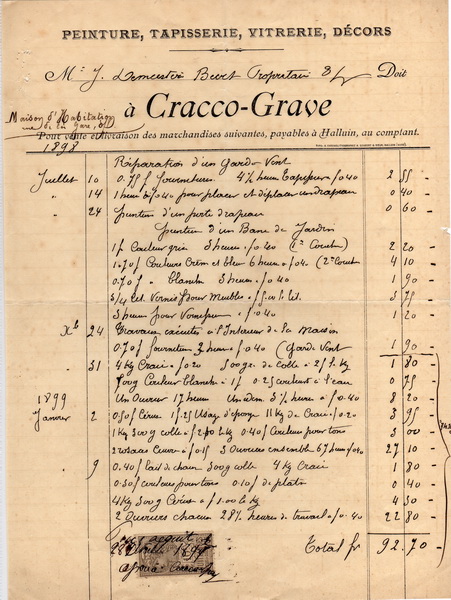 PEINTURE, TAPISSERIE, VITRERIE, DÉCORS
Mr J. Propriétaire Doit
à Cracco-Grave
Maison d'Habitation
rue de la gare,
Pour vente et livraison des marchandises suivantes, payables à Halluin, au comptant.
1898
Réparation d'un Garde-Vent
Juillet 10 0.75 f fourniture 4 ½ heures Tapissier f 0.40 2 55
" 14 1 heure à f 0.40 pour placer et déplacer un drapeau 0 40
" 24 peinture d'un porte drapeau 0 60
peinture d'un Banc de Jardin
1 f Couleur gris 3 heures f 0.40 (1e Couche) 2 20
1.70 f Couleurs Crêm et bleu 6 heures f 0.40 (2e Couche) 4 10
0.70 f " blanche 3 heures f 0.40 1 90
3/4 lit. Vernis pour Meubles f 5.00 le lit. 3 75
3 heures pour Vernisseur f 0.40 1 20
Xbre 24 Travaux exécutés à l'Intérieur de la Maison
0.70 f fourniture 3 heures f 0.40 (Garde Vent) 1 90
31 4 Kg Craie f 0.20 500 gr de Colle 2 f le Kg 1 80
500 g Couleur blanche 1 f 0.25 couleur à l'eau 0 75
1899 Un Ouvrier 17 heures Un dem 3 ½ heures f 0.40 8 20
Janvier 2 0.50 f Cerus 1.25 Usage d'éponge 11 Kg de Craie f 0.20 3 95
1 Kg 300 g colle f 2.00 le Kg 0.40 f Couleur pour tons 3 00
f 0.15 3 Ouvriers ensemble 67 heures f 0.40 27 10
9 0.40 f lait de chaux 300 g colle 4 Kg Craie 1 80
0.30 f couleur pour tons 0.10 f de platre 0 40
4 Kg 500 g Ceruse f 1.00 le Kg 4 50
2 Ouvriers chacun 28 ½ heures de travail f 0.40 22 80
Total fr 92.70
Pour acquit
1899